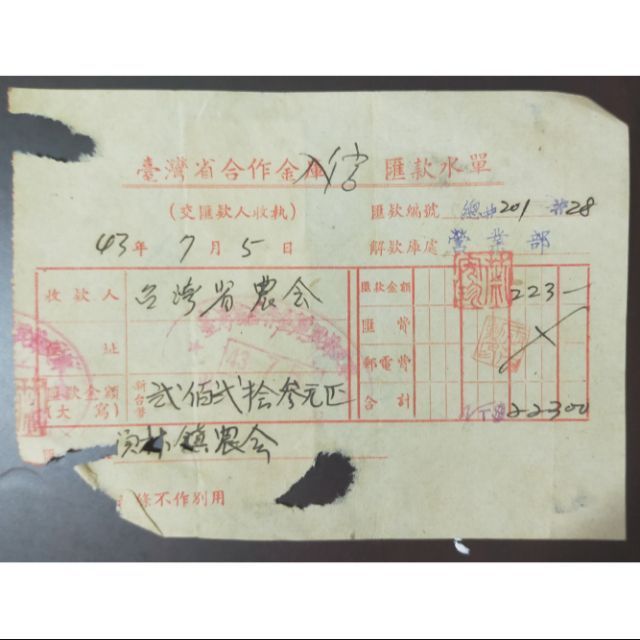 臺灣省合作金庫 匯款水單
(交匯款人收執) 匯款編號 總#201 #28
43年7月5日 解款庫處 營業部
收款人 台灣省農会 匯款金額 223—
址 匯費
郵電費
款金額(大寫) 新台幣 弍佰弍拾參元正 合計 22300
鎮農会
條不作別用